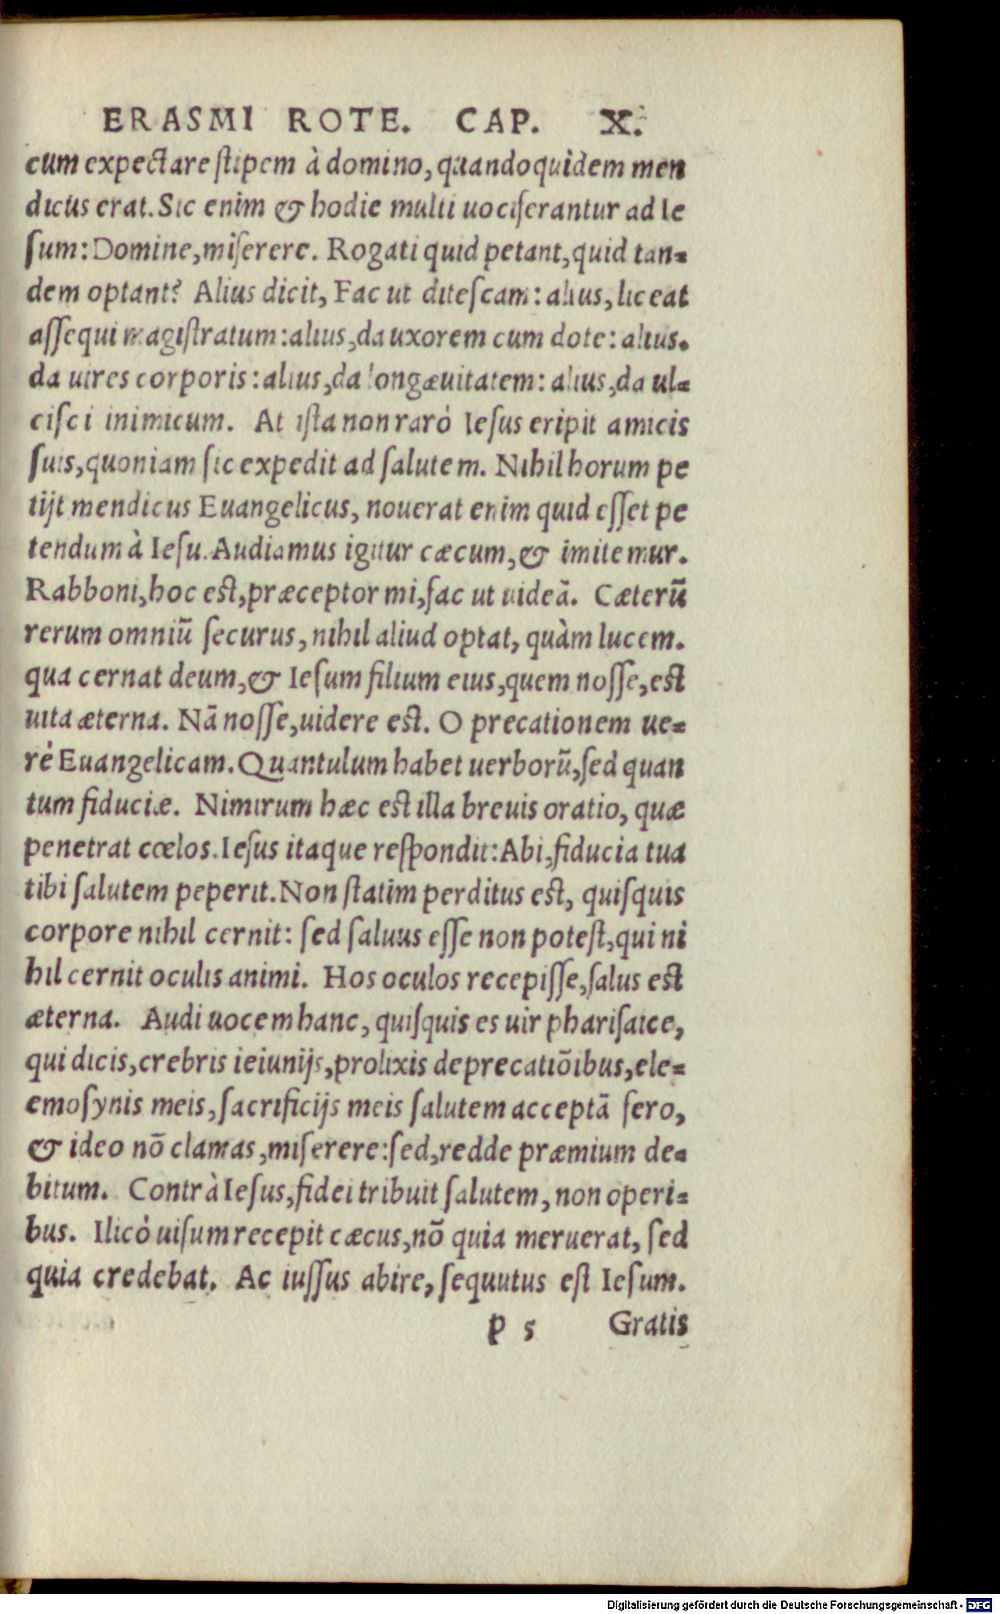 ERASMI ROTE. CAP. X.
cum expectare ſtipem à domino, quandoquidem men
dicus erat. Sic enim & hodie multi uociferantur ad Ie
ſum: Domine, miſerere. Rogati quid petant, quid tan-
dem optant? Alius dicit, Fac ut diteſcam: alius, liceat
aſſequi magiſtratum: alius, da uxorem cum dote: alius.
da uires corporis: alius, da longæuitatem: alius, da ul-
ciſci inimicum. At iſta non rarò Ieſus eripit amicis
ſuis, quoniam ſic expedit ad ſalutem. Nihil horum pe
tijt mendicus Euangelicus, nouerat enim quid eſſet pe
tendum à Ieſu. Audiamus igitur cæcum, & imitemur.
Rabboni, hoc eſt, præceptor mi, fac ut uideā. Cæterū
rerum omniū ſecurus, nihil aliud optat, quàm lucem.
qua cernat deum, & Ieſum filium eius, quem noſſe, eſt
uita æterna. Nā noſſe, uidere eſt. O precationem ue-
ré Euangelicam. Quantulum habet uerborū, ſed quan
tum fiduciæ. Nimirum hæc eſt illa breuis oratio, quæ
penetrat cœlos. Ieſus itaque reſpondit: Abi, fiducia tua
tibi ſalutem peperit. Non ſtatim perditus eſt, quiſquis
corpore nihil cernit: ſed ſaluus eſſe non poteſt, qui ni
hil cernit oculis animi. Hos oculos recepiſſe, ſalus eſt
æterna. Audi uocem hanc, quiſquis es uir phariſaice,
qui dicis, crebris ieiunijs, prolixis deprecatiōibus, ele-
emoſynis meis, ſacrificijs meis ſalutem acceptā fero,
& ideo nō clamas, miſerere: ſed, redde præmium de-
bitum. Contrà Ieſus, fidei tribuit ſalutem, non operi-
bus. Ilicò uiſum recepit cæcus, nō quia meruerat, ſed
quia credebat. Ac iuſſus abire, ſequutus eſt Ieſum.
p 5 Gratis
Digitalisierung gefördert durch die Deutsche Forschungsgemeinschaft - DFG